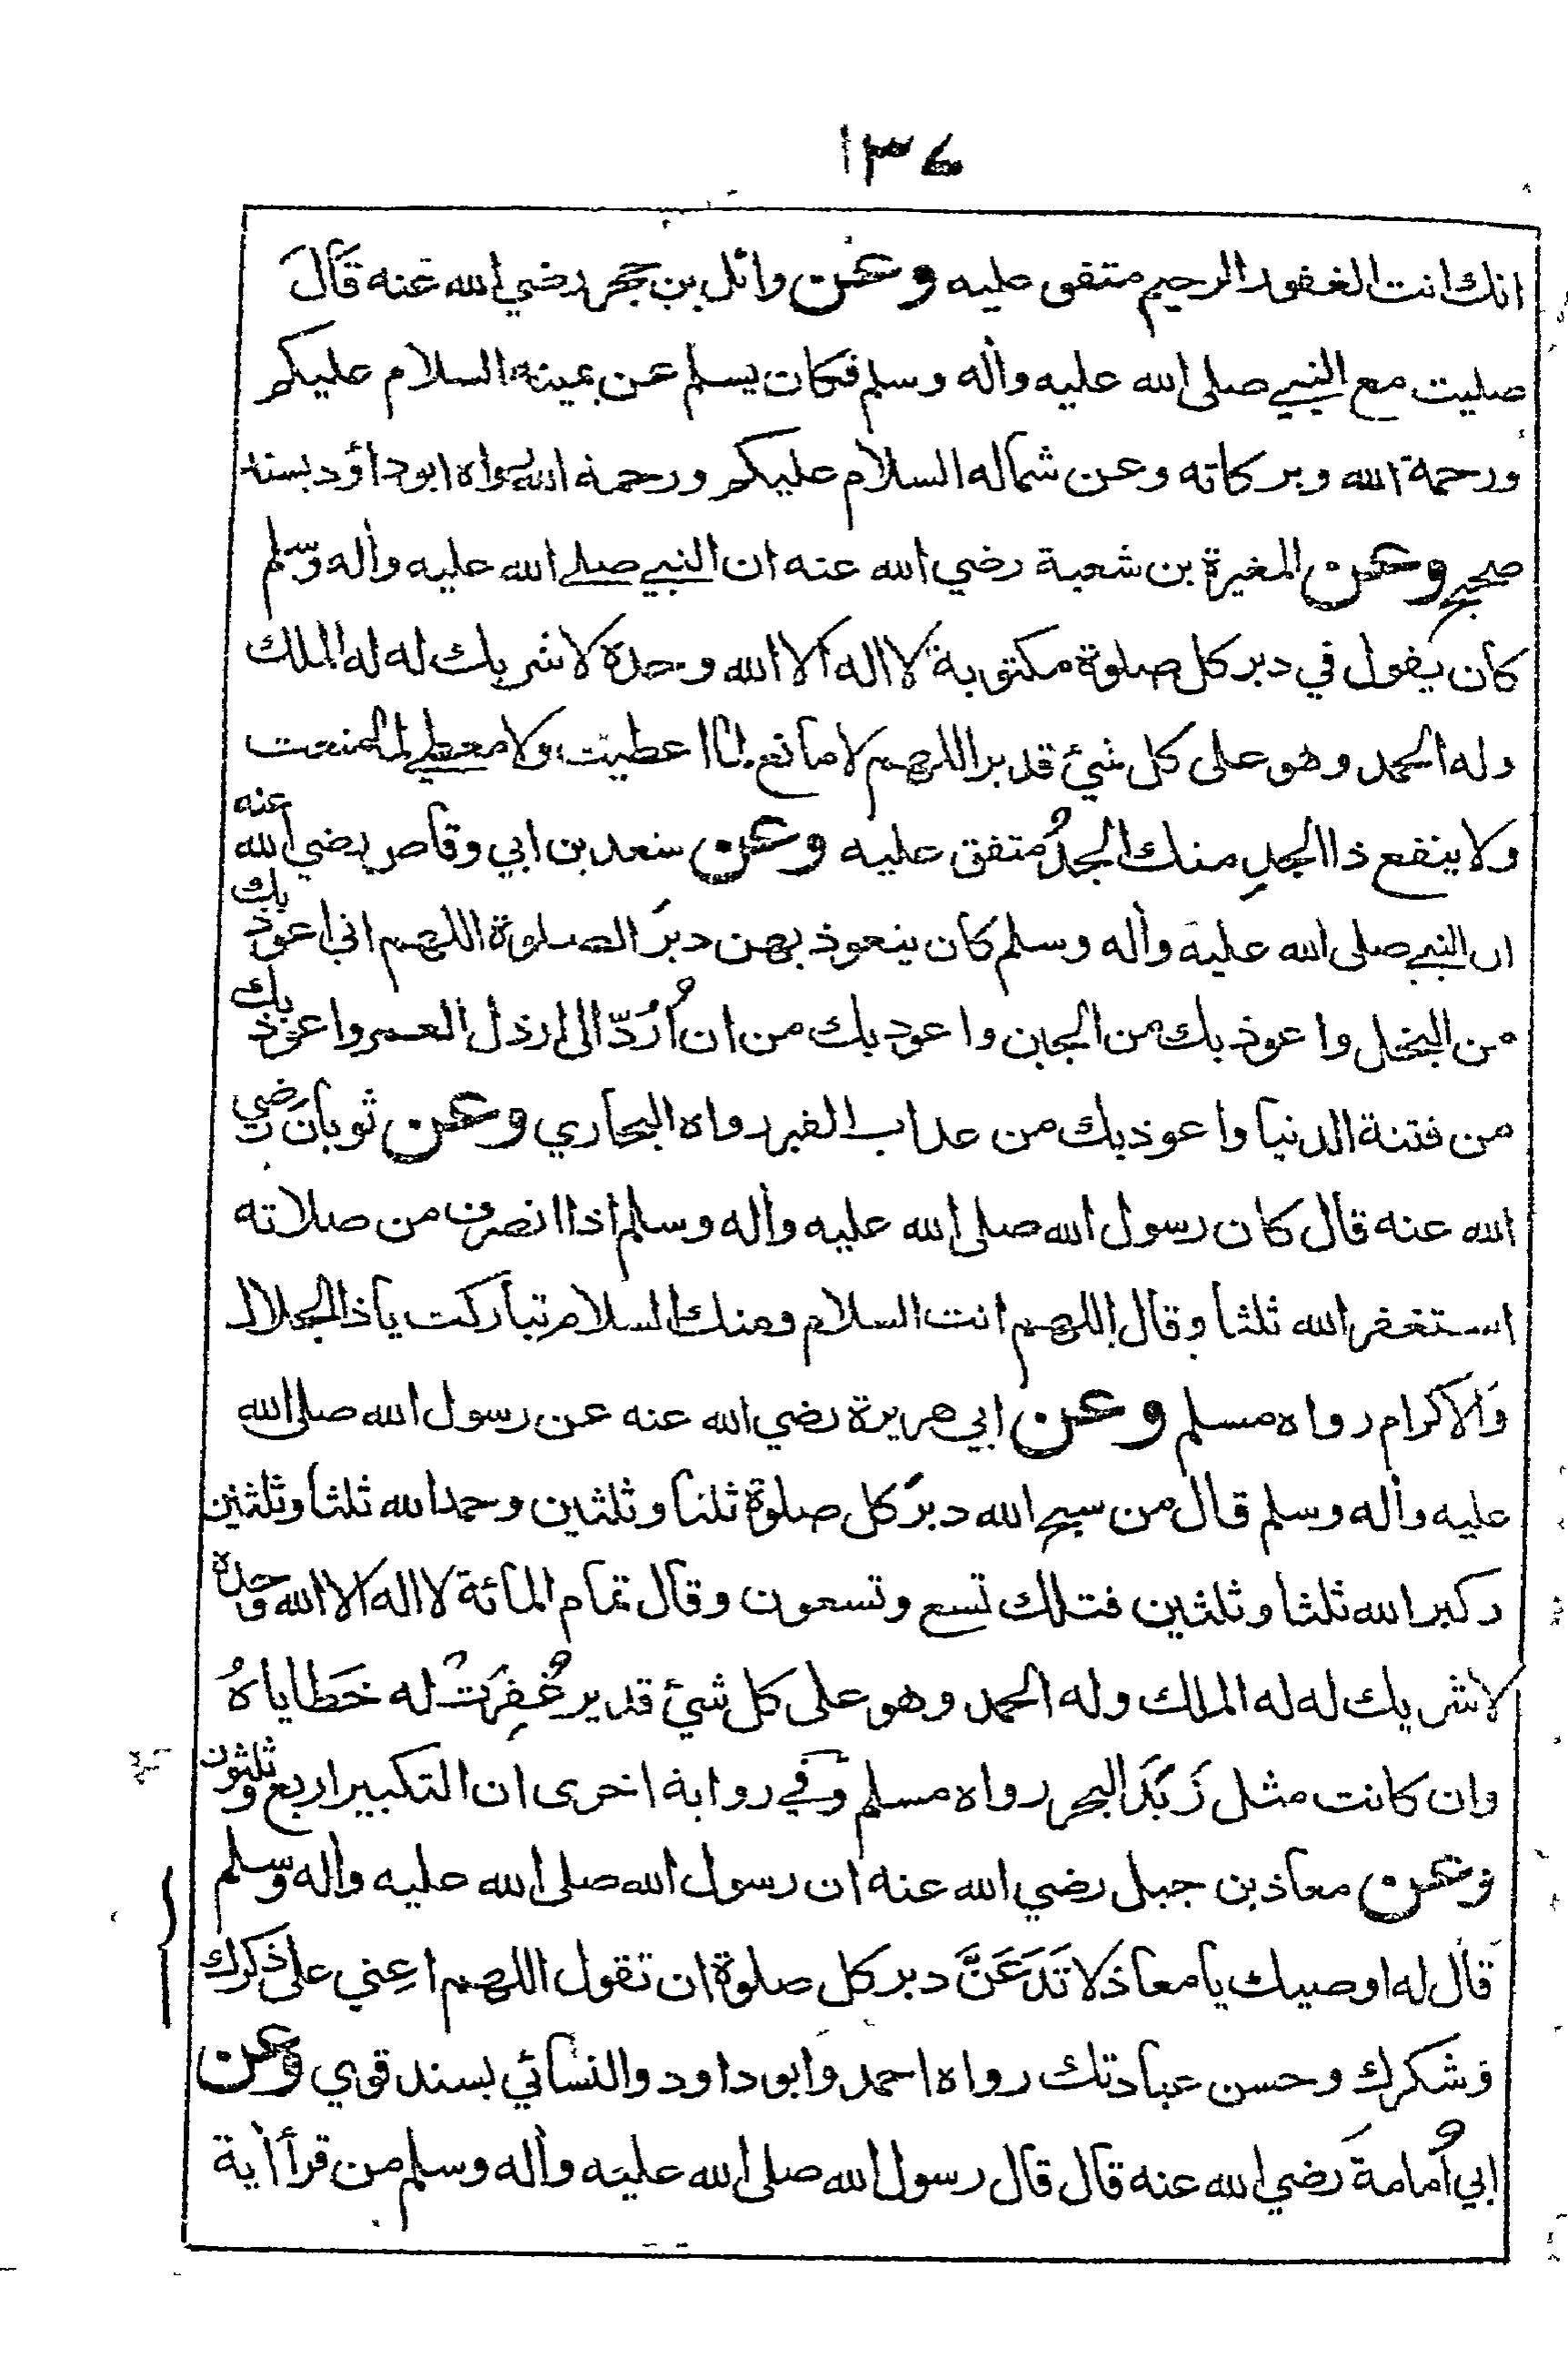 ١٣٤
انك انت الغفور الرحيم متفق عليه وعن وائل بن حجر رضي الله عنه قَالَ
صليت مع النبي صلى الله عليه واٰله وسلم فكان يسلم عن يمينه السلام عليكم
ورحمة الله وبركاته وعن شماله السلام عليكم ورحمة الله رواه ابو داؤد بسند
صحيح وعن المغيرة بن شعبة رضي الله عنه ان النبي صلى الله عليه واٰله وسلم
كان يقول في دبر كل صلوة مكتوبة لا اله الا الله وحده لا شريك له له الملك
وله الحمد وهو على كل شئ قدير اللهم لا مانع لما اعطيت ولا معطي لما منعت
ولا ينفع ذا الجدِ منك الجدُ متفق عليه وعن سعد بن ابي وقاص رضي الله عنه
ان النبي صلى الله عليه واٰله وسلم كان يتعوذ بهن دبرَ الصلوة اللهم اني اعوذ بك
من البخل واعوذ بك من الجبن واعوذ بك من ان اُرَدّ الى ارذل العمر واعوذ بك
من فتنة الدنيا واعوذ بك من عذاب القبر رواه البخاري وعن ثوبانَ رضي
الله عنه قال كان رسول الله صلى الله عليه واٰله وسلم اذا انصرف من صلاته
استغفر الله ثلثا وقال اللهم انت السلام ومنك السلام تباركت يا ذا الجلال
وَالاكرام رواه مسلم وعن ابي هريرة رضي الله عنه عن رسول الله صلى الله
عليه واٰله وسلم قال من سبح الله دبرَ كل صلوة ثلثا وثلثين وحمد الله ثلثا وثلثين
وكبر الله ثلثا وثلثين فتلك تسع وتسعون وقال تمام المائة لا اله الا الله وحده
لا شريك له له الملك وله الحمد وهو على كل شئ قدير غُفِرَتْ له خَطاياهُ
وان كانت مثل زَبَدَ البحر رواه مسلم وَفي رواية اخرى ان التكبير اربع وثلثون
وعن معاذ بن جبل رضي الله عنه ان رسول الله صلى الله عليه واٰله وسلم
قال له اوصيك يا معاذ لا تَدَعَنَّ دبر كل صلوة ان تقول اللهم اعِني على ذكرك
وَشكرك وحسن عبادتك رواه احمد وابو داود والنسائي بسند قوي وعن
ابي اُمامةَ رَضي الله عنه قال قال رسول الله صلى الله عليه واٰله وسلم من قرأ اٰية